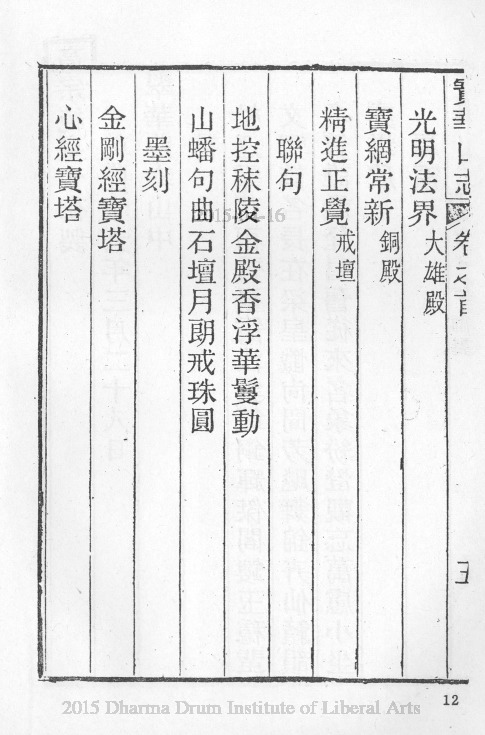 寶華山志 卷之首 五
光明法界 大雄殿
寶網常新 銅殿
精進正覺 戒壇
聯句
地控秣陵金殿香浮華鬘動
山蟠句曲石壇月朗戒珠圓
墨刻
金剛經寶塔
心經寶塔
12
2015 Dharma Drum Institute of Liberal Arts